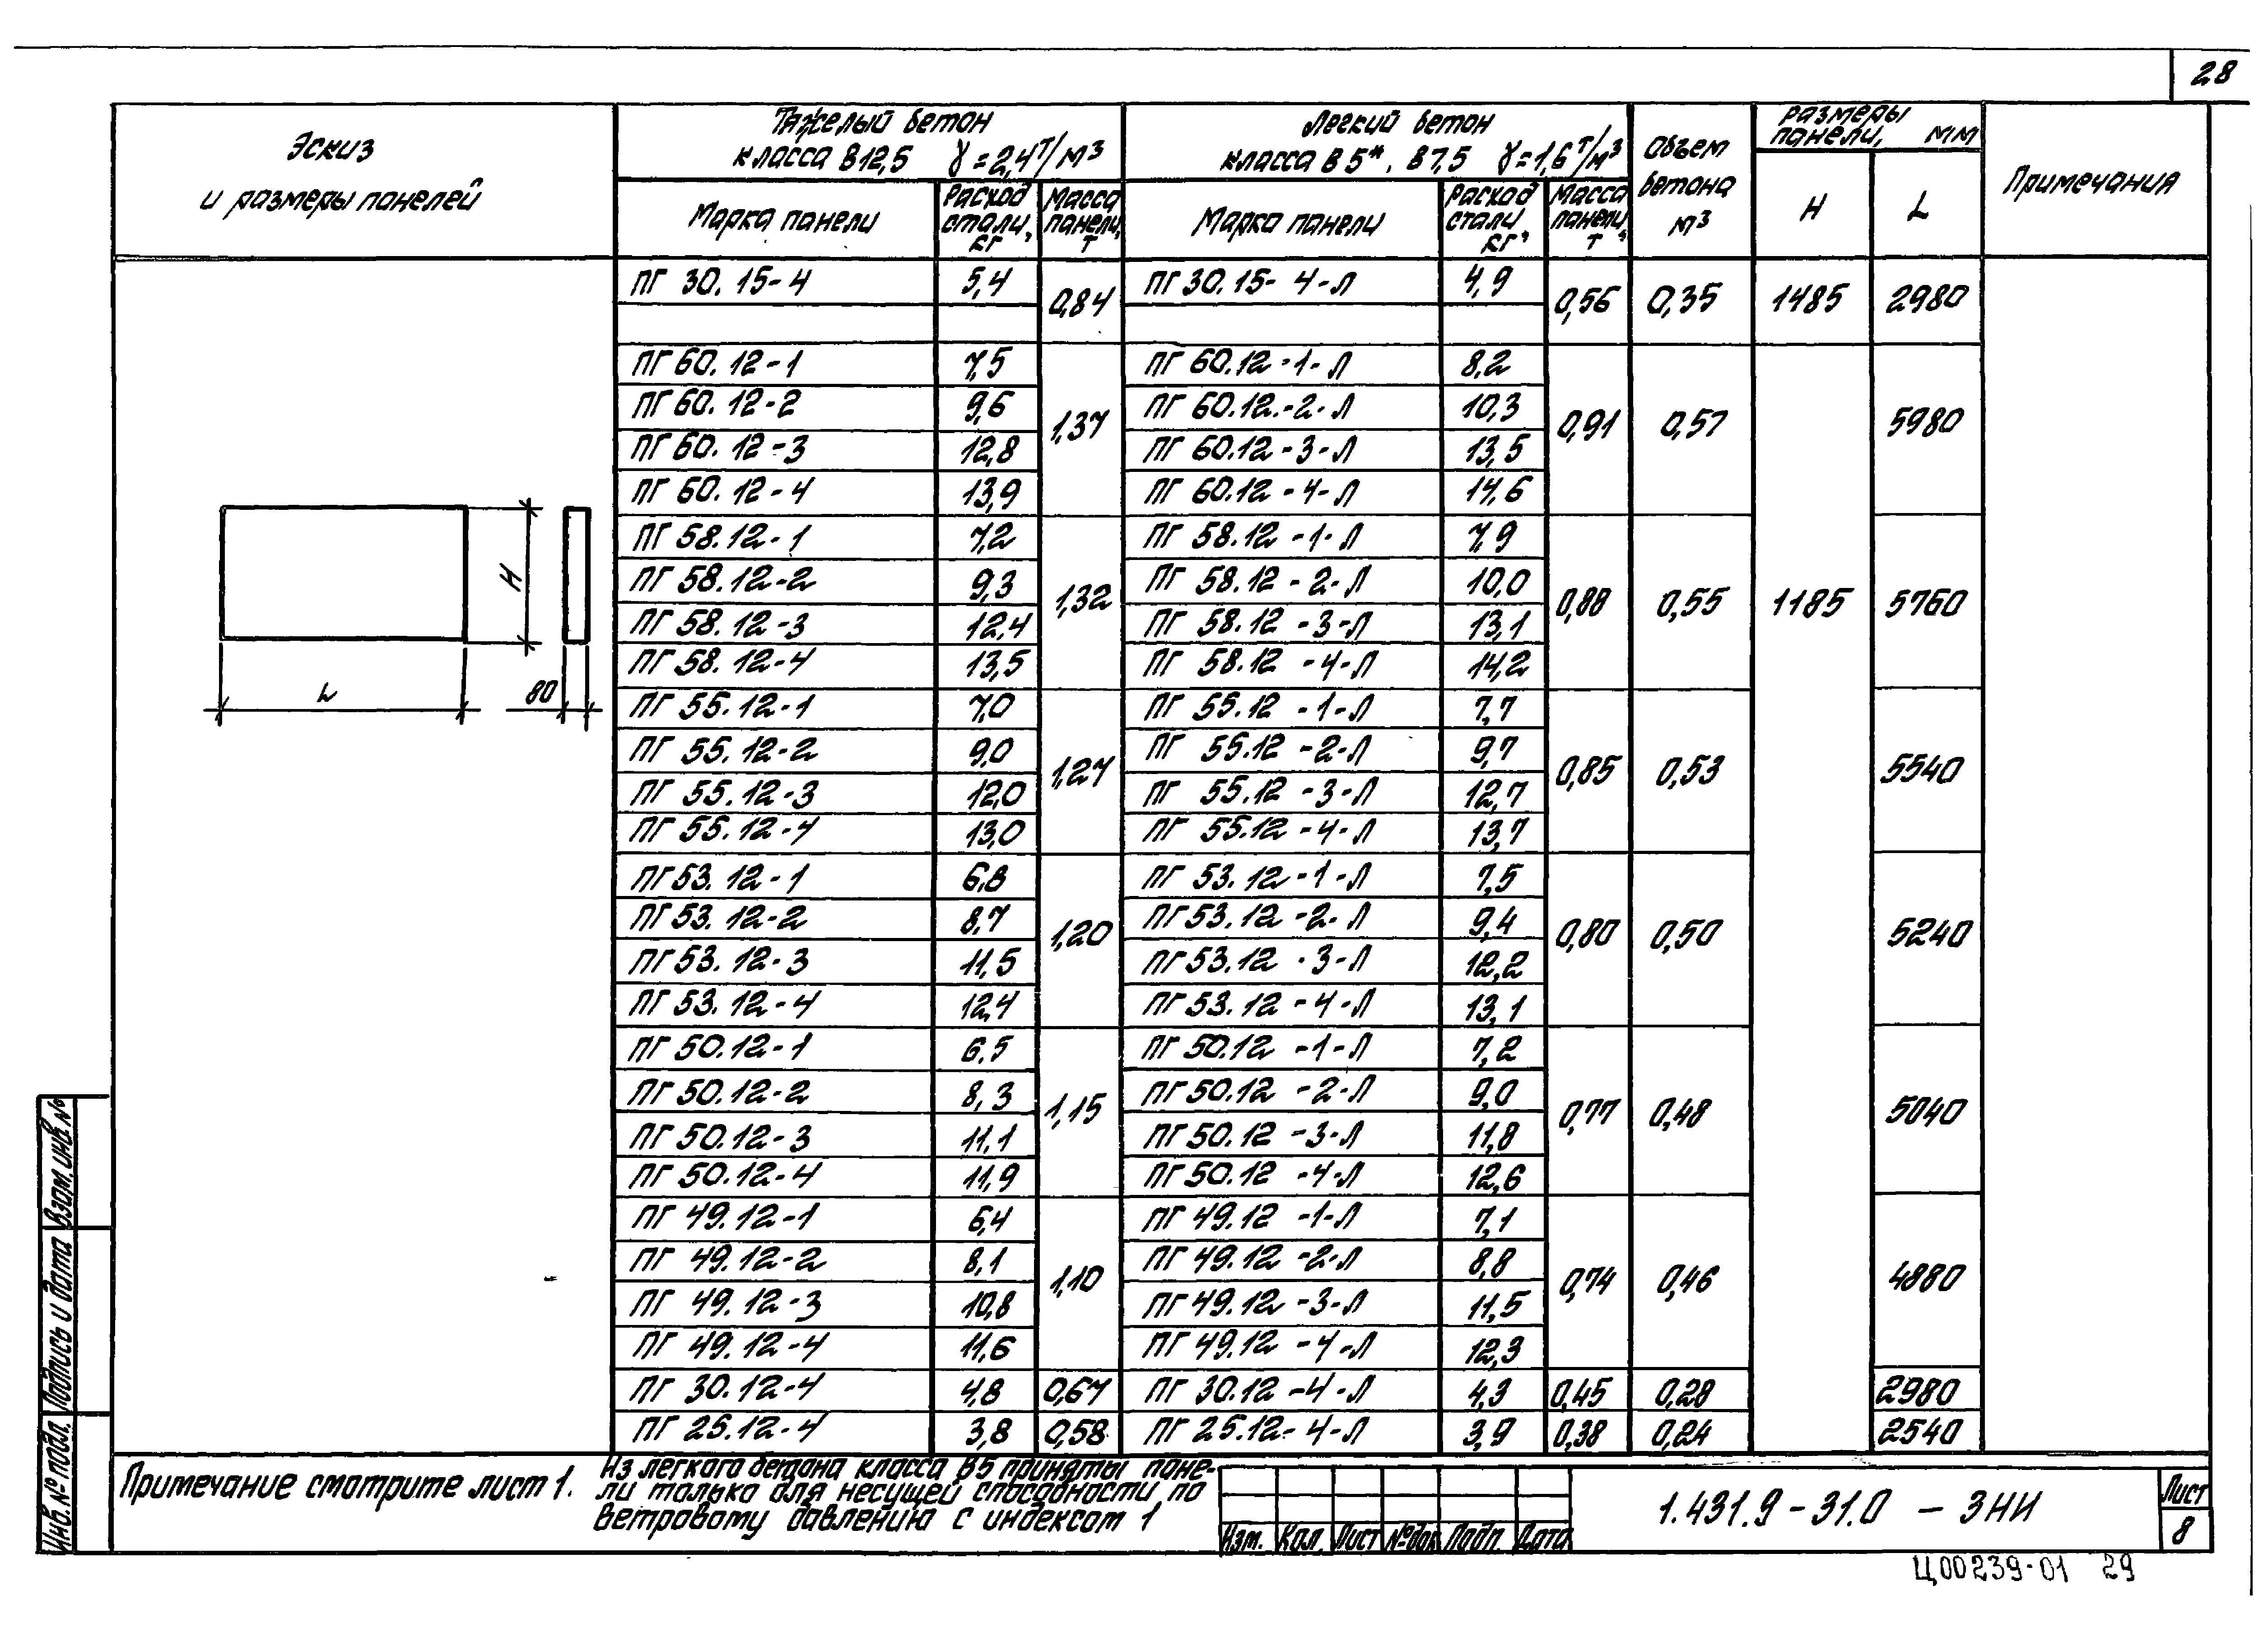 28
Эскиз и размеры панелей
Тяжелый бетон класса В12,5 γ=2,4 т/м³
Легкий бетон класса В5*, В7,5 γ=1,6 т/м³
Объем бетона м³
Размеры панели, мм
Примечания
Марка панели Расход стали, кг Масса панели, т Марка панели Расход стали, кг Масса панели, т H L
ПГ 30.15-4 5,4 0,84 ПГ 30.15-4-Л 4,9 0,56 0,35 1485 2980
ПГ 60.12-1 7,5 ПГ 60.12-1-Л 8,2
ПГ 60.12-2 9,6 1,37 ПГ 60.12.-2-Л 10,3 0,91 0,57 5980
ПГ 60.12-3 12,8 ПГ 60.12-3-Л 13,5
ПГ 60.12-4 13,9 ПГ 60.12-4-Л 14,6
ПГ 58.12-1 7,2 ПГ 58.12-1-Л 7,9
ПГ 58.12-2 9,3 1,32 ПГ 58.12-2-Л 10,0 0,88 0,55 1185 5760
ПГ 58.12-3 12,4 ПГ 58.12-3-Л 13,1
ПГ 58.12-4 13,5 ПГ 58.12-4-Л 14,2
ПГ 55.12-1 7,0 ПГ 55.12-1-Л 7,7
ПГ 55.12-2 9,0 1,27 ПГ 55.12-2-Л 9,7 0,85 0,53 5540
ПГ 55.12-3 12,0 ПГ 55.12-3-Л 12,7
ПГ 55.12-4 13,0 ПГ 55.12-4-Л 13,7
ПГ 53.12-1 6,8 ПГ 53.12-1-Л 7,5
ПГ 53.12-2 8,7 1,20 ПГ 53.12-2-Л 9,4 0,80 0,50 5240
ПГ 53.12-3 11,5 ПГ 53.12-3-Л 12,2
ПГ 53.12-4 12,4 ПГ 53.12-4-Л 13,1
ПГ 50.12-1 6,5 ПГ 50.12-1-Л 7,2
ПГ 50.12-2 8,3 1,15 ПГ 50.12-2-Л 9,0 0,77 0,48 5040
ПГ 50.12-3 11,1 ПГ 50.12-3-Л 11,8
ПГ 50.12-4 11,9 ПГ 50.12-4-Л 12,6
ПГ 49.12-1 6,4 ПГ 49.12-1-Л 7,1
ПГ 49.12-2 8,1 1,10 ПГ 49.12-2-Л 8,8 0,74 0,46 4880
ПГ 49.12-3 10,8 ПГ 49.12-3-Л 11,5
ПГ 49.12-4 11,6 ПГ 49.12-4-Л 12,3
ПГ 30.12-4 4,8 0,67 ПГ 30.12-4-Л 4,3 0,45 0,28 2980
ПГ 25.12-4 3,8 0,58 ПГ 25.12-4-Л 3,9 0,38 0,24 2540
H
L
80
Примечание смотрите лист 1.
Из легкого бетона класса В5 приняты пане-
ли только для несущей способности по
ветровому давлению с индексом 1
Изм. Кол. Лист №док Подп. Дата
1.431.9-31.0 - 3НИ
Лист
8
Взам. инв. №
Подпись и дата
Инв. № подл.
Ц00239-01 29